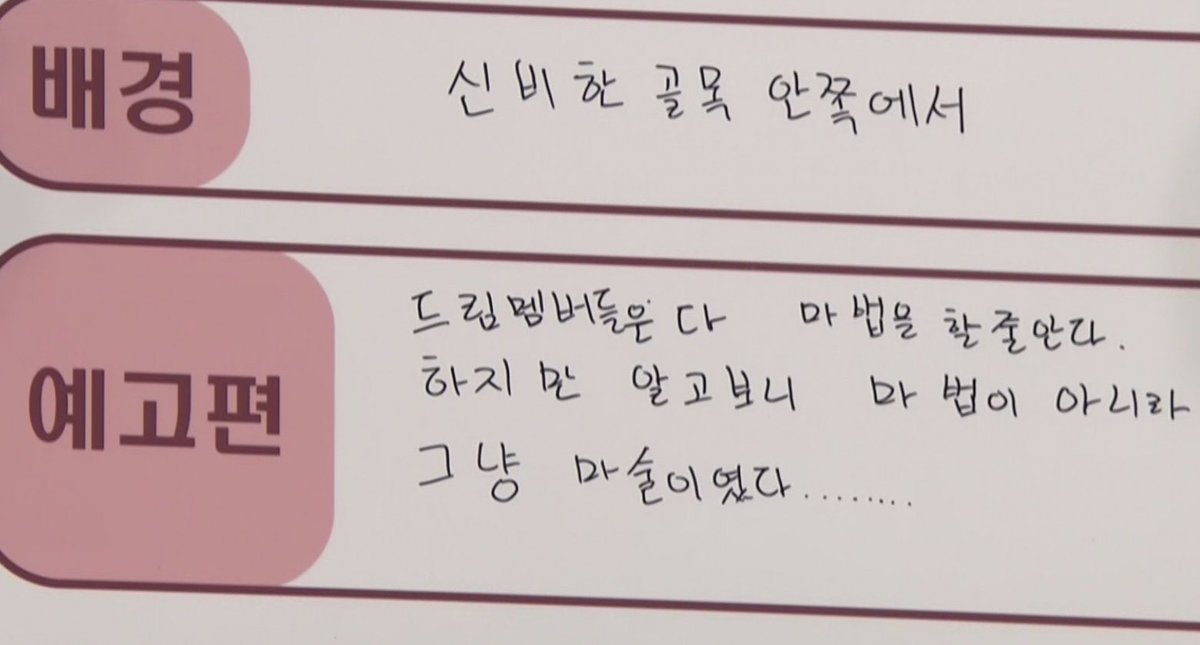 배경
신비한 골목 안쪽에서
예고편
드림멤버들은 다 마법을 할줄안다.
하지만 알고보니 마법이 아니라
그냥 마술이였다........